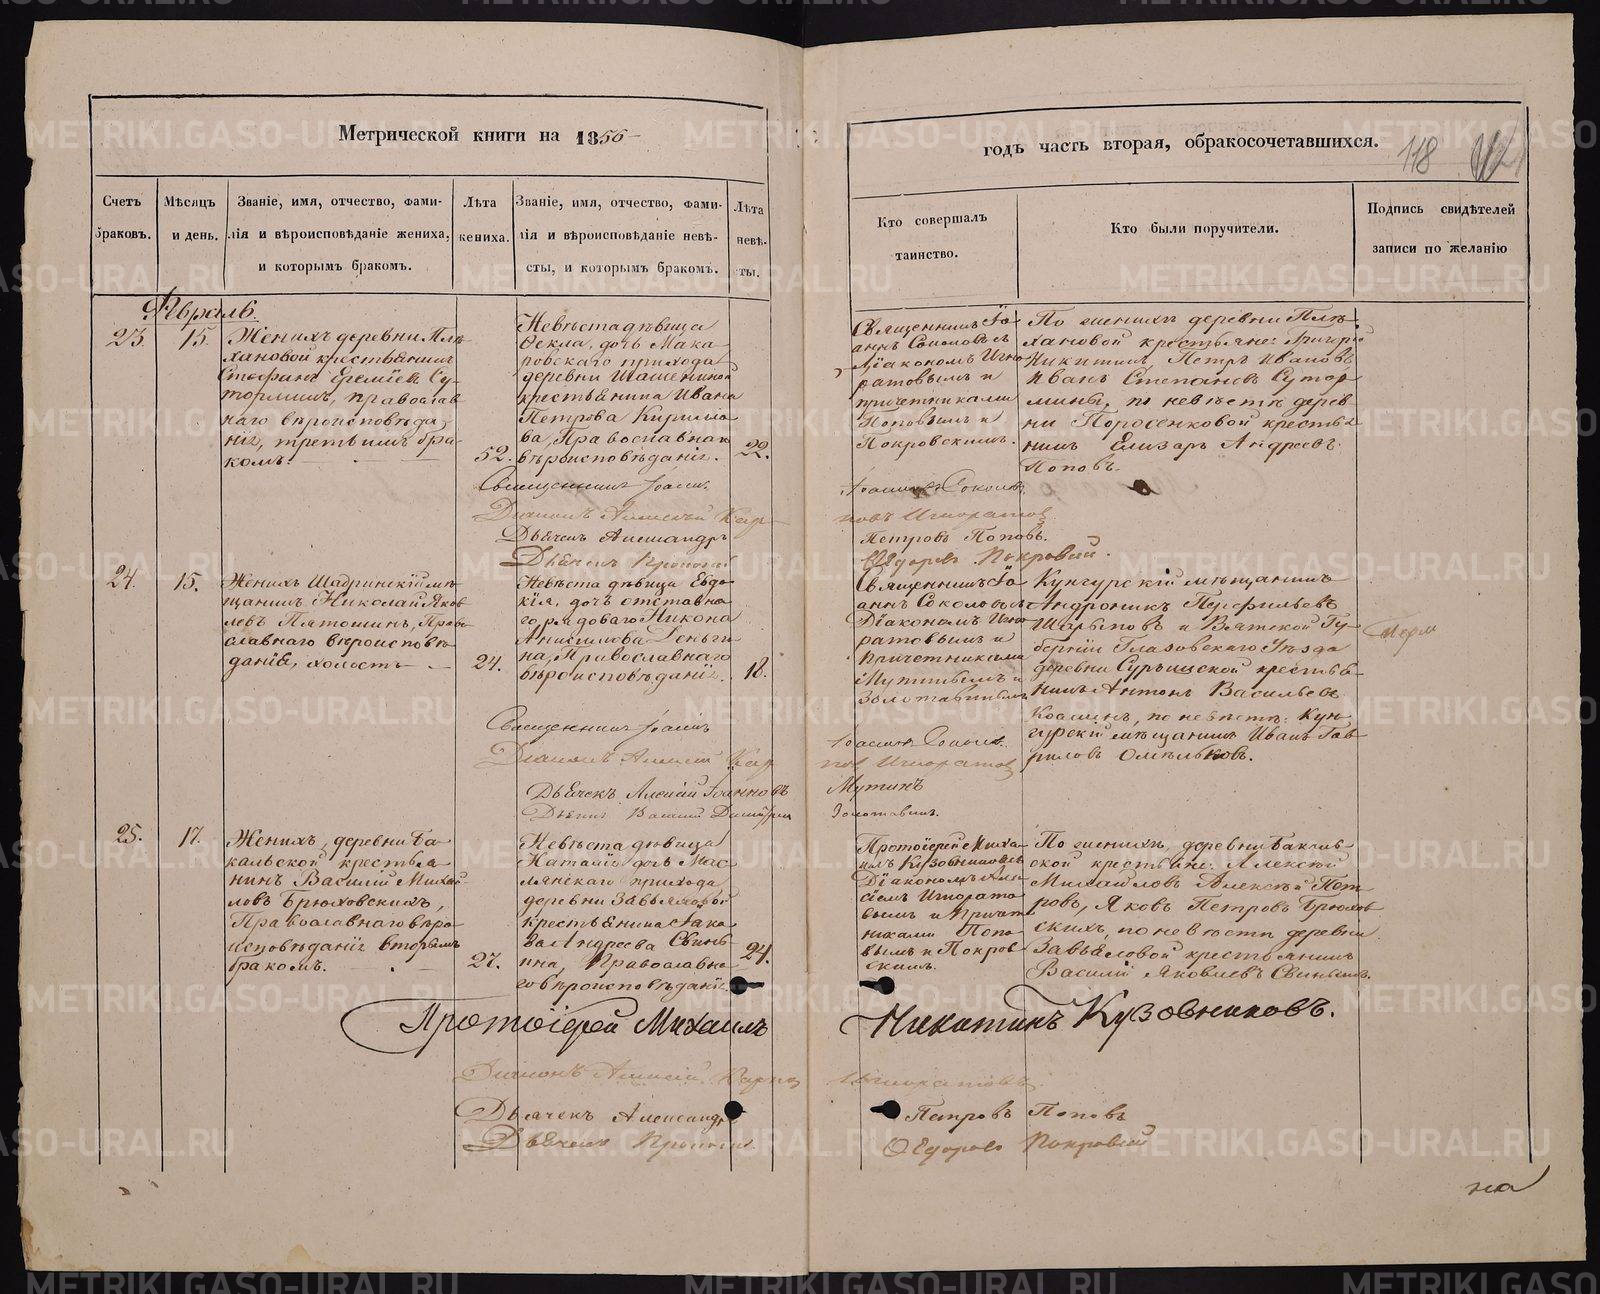 Метрической книги на 1856
годъ часть вторая, обракосочетавшихся.
118
Счетъ
браковъ.
Мѣсяцъ
и день.
Званіе, имя, отчество, фами-
лія и вѣроисповѣданіе жениха,
и которымъ бракомъ.
Лѣта
жениха.
Званіе, имя, отчество, фами-
лія и вѣроисповѣданіе невѣ-
сты, и которымъ бракомъ.
Лѣта
невѣ-
сты.
Кто совершалъ
таинство.
Кто были поручители.
Подпись свидѣтелей
записи по желанію
Февраль.
23.
15.
Женихъ деревни Пле
хановой крестьянинъ
Стефанъ Еремѣевъ Су-
торминъ, православ
наго вѣроисповѣда
нія, третьимъ бра-
комъ.
52.
Невѣста дѣвица
Фекла, дочь Мака
ровскаго прихода
деревни
крестьянина Ивана
Петрова Кирило
ва, Православнаго
вѣроисповѣданія.
22.
Священникъ Іо
аннъ Соколовъ съ
Діакономъ Игно
ратовымъ и
причетниками
Поповымъ и
Покровскимъ.
По женихѣ деревни Плѣ
хановой крестьяне: Григорій
Никитинъ, Петръ Ивановъ
Иванъ Степановъ Сутор
мины, по невѣстѣ дерев
ни Поросенковой крестья
нинъ Елизаръ Андреевъ
Поповъ.
Священникъ Іоаннъ
Іоаннъ Соколо
Діаконъ Алексѣй Кар
новъ Игноратовъ
Дьячекъ Александръ
Петровъ Поповъ.
Дьячекъ Прокопій
Ѳедоровъ Покровскій.
24.
15.
Женихъ Шадринскій мѣ
щанинъ Николай Яков
левъ Пятошинъ, Право
славнаго вѣроисповѣ
данія, холостъ
24.
Невѣста дѣвица Евдо
кія, дочь отставна
го рядоваго Никона
Анисимова Деньги
на, Православнаго
вѣроисповѣданія.
18.
Священникъ Іо
аннъ Соколовъ съ
Діакономъ Игно
ратовымъ и
Причетниками
Мутинымъ и
Золотавинымъ
Кунгурскій мѣщанинъ
Андроникъ Перфильевъ
Шарыповъ и Вятской Гу-
берніи Глазовскаго Уѣзда
деревни крестья
нинъ Антонъ Васильевъ
по невѣстѣ: Кун
гурскій мѣщанинъ Иванъ Гав
риловъ Омельковъ.
Священникъ Іоаннъ
Діаконъ Алексѣй Кар
новъ Игноратовъ
Дьячекъ Алексій Іоанновъ
Мутинъ
Золотавинъ.
25.
17.
Женихъ, деревни Ба-
кальской крестья
нинъ Василій Михай-
ловъ Брюховскихъ,
Православнаго вѣро
исповѣданія вторымъ
бракомъ.
27.
Невѣста дѣвица
Наталія дочь Мас
лянскаго прихода
деревни Завьяловой
крестьянина Яко
ва Андреева Свинь
ина, Православна
го вѣроисповѣданія
24.
Протоіерей Миха
илъ Кузовниковъ съ
Діакономъ Алек
сіемъ Игнорато
вымъ и Причет
никами Попо
вымъ и Покров
скимъ.
По женихѣ, деревни Бакаль-
ской крестьяне: Алексѣй
Михайловъ Алексѣй Пет
ровъ, Яковъ Петровъ Брюхов
скихъ, по невѣстѣ деревни
Завьяловой крестьянинъ
Василій Яковлевъ Свиньинъ.
Протоіерей Михаилъ
Никитинъ Кузовниковъ.
Діаконъ Алексій Карно
Игноратовъ.
Дьячекъ Александръ
Петровъ Поповъ
Дьячекъ Прокопій
Ѳедоровъ Покровскій
на
METRIKI.GASO-URAL.RU